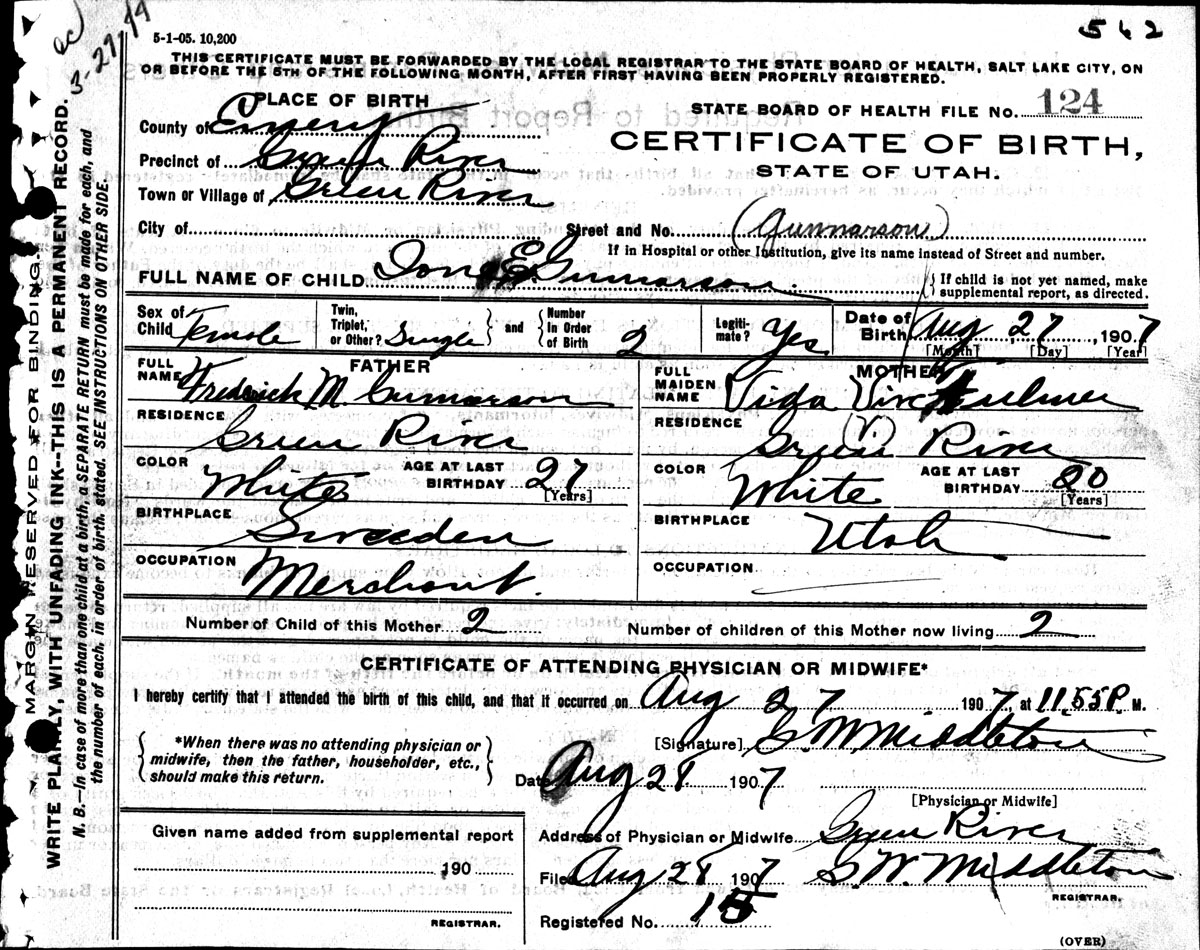 5-1-05. 10,200
542
THIS CERTIFICATE MUST BE FORWARDED BY THE LOCAL REGISTRAR TO THE STATE BOARD OF HEALTH, SALT LAKE CITY, ON
OR BEFORE THE 5TH OF THE FOLLOWING MONTH, AFTER FIRST HAVING BEEN PROPERLY REGISTERED.
3-29/44
PLACE OF BIRTH
STATE BOARD OF HEALTH FILE No. 124
County of Emery
CERTIFICATE OF BIRTH,
Precinct of Green River
STATE OF UTAH.
Town or Village of Green River
City of
Street and No. (Gunnarson)
If in Hospital or other Institution, give its name instead of Street and number.
FULL NAME OF CHILD Ione E. Gunnarson.
{ If child is not yet named, make
supplemental report, as directed.
Sex of Child Female
Twin, Triplet, or Other? Single } and { Number In Order of Birth 2
Legiti- mate? Yes
Date of Birth Aug 27, 1907
[Month] [Day] [Year]
FATHER
FULL NAME Fredrick M. Gunnarson
RESIDENCE Green River
COLOR White
AGE AT LAST BIRTHDAY 27
[Years]
BIRTHPLACE Sweeden
OCCUPATION Merchant.
MOTHER
FULL MAIDEN NAME Vida Fulmer
(V.)
RESIDENCE Green River
COLOR White
AGE AT LAST BIRTHDAY 20
[Years]
BIRTHPLACE Utah
OCCUPATION
Number of Child of this Mother 2
Number of children of this Mother now living 2
CERTIFICATE OF ATTENDING PHYSICIAN OR MIDWIFE*
I hereby certify that I attended the birth of this child, and that it occurred on Aug 27 1907, at 11.55 P. M.
{ *When there was no attending physician or
midwife, then the father, householder, etc.,
should make this return. }
[Signature] G. W. Middleton
Date Aug 28 1907
[Physician or Midwife]
Given name added from supplemental report
190
REGISTRAR.
Address of Physician or Midwife Green River
File Aug 28 1907 G. W. Middleton
REGISTRAR.
Registered No. 15
(OVER)
MARGIN RESERVED FOR BINDING.
WRITE PLAINLY, WITH UNFADING INK--THIS IS A PERMANENT RECORD.
N. B.—In case of more than one child at a birth, a SEPARATE RETURN must be made for each, and
the number of each, in order of birth, stated. SEE INSTRUCTIONS ON OTHER SIDE.